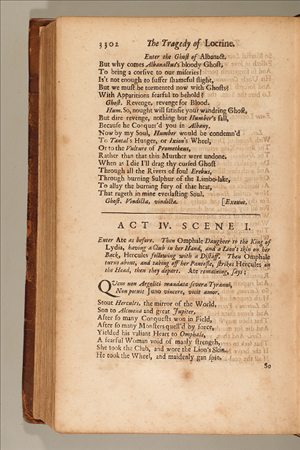 3302 The Tragedy of Locrine.
Enter the Ghost of Albanact.
But why comes Albanactus's bloody Ghost,
To bring a corsive to our miseries?
Is't not enough to suffer shameful flight,
But we must be tormented now with Ghosts?
With Apparitions fearful to behold?
Ghost. Revenge, revenge for Blood.
Hum. So, nought will satisfie your wandring Ghost,
But dire revenge, nothing but Humber's fall,
Because he Conquer'd you in Albany.
Now by my Soul, Humber would be condemn'd
To Tantal's Hunger, or Ixion's Wheel,
Or to the Vulture of Prometheus,
Rather than that this Murther were undone.
When as I die I'll drag thy cursed Ghost
Through all the Rivers of foul Erebus,
Through burning Sulphur of the Limbo-lake,
To allay the burning fury of that heat,
That rageth in mine everlasting Soul.
Ghost. Vindicta, vindicta. [Exeunt.
ACT IV. SCENE I.
Enter Ate as before. Then Omphale Daughter to the King of
Lydia, having a Club in her Hand, and a Lion's skin on her
Back, Hercules following with a Distaff. Then Omphale
turns about, and taking off her Pantofle, strikes Hercules on
the Head, then they depart. Ate remaining, says;
Quem non Argolici mandata severa Tyranni,
Non potuit Juno vincere, vicit amor.
Stout Hercules, the mirror of the World,
Son to Alcmena and great Jupiter,
After so many Conquests won in Field,
After so many Monsters quell'd by force,
Yielded his valiant Heart to Omphale,
A fearful Woman void of manly strength,
She took the Club, and wore the Lion's Skin,
He took the Wheel, and maidenly gan spin.
So